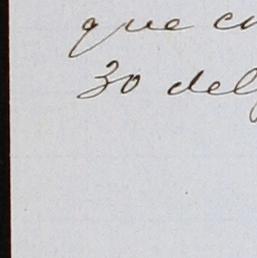 que
30 del